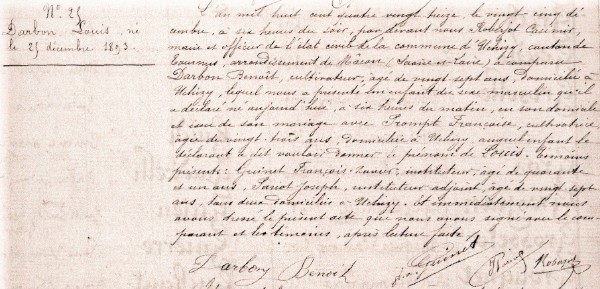 N° 25
Darbon Louis, né
le 25 décembre 1893.
L'an mil huit cent quatre vingt treize, le vingt cinq dé-
cembre, à six heures du soir, par devant nous Robejot Casimir,
maire et officier de l'état civil de la commune d'Uchizy, canton de
Tournus, arrondissement de Mâcon (Saône et Loire) a comparu
Darbon Benoît, cultivateur, âgé de vingt sept ans, domicilié à
Uchizy, lequel nous a présenté un enfant du sexe masculin qu'il
a déclaré né aujourd'hui, à six heures du matin, en son domicile
et issu de son mariage avec Prompt Françoise, cultivatrice
âgée de vingt-trois ans, domiciliée à Uchizy, auquel enfant le
déclarant a dit vouloir donner le prénom de Louis. Témoins
présents: Guinet François-Xavier, instituteur, âgé de quarante
et un ans, Joseph, instituteur adjoint, âgé de vingt sept
ans, tous deux domiciliés à Uchizy. Et immédiatement nous
avons dressé le présent acte que nous avons signé avec le com-
parant et les témoins, après lecture faite.
Darbon Benoit Guinet Robejot